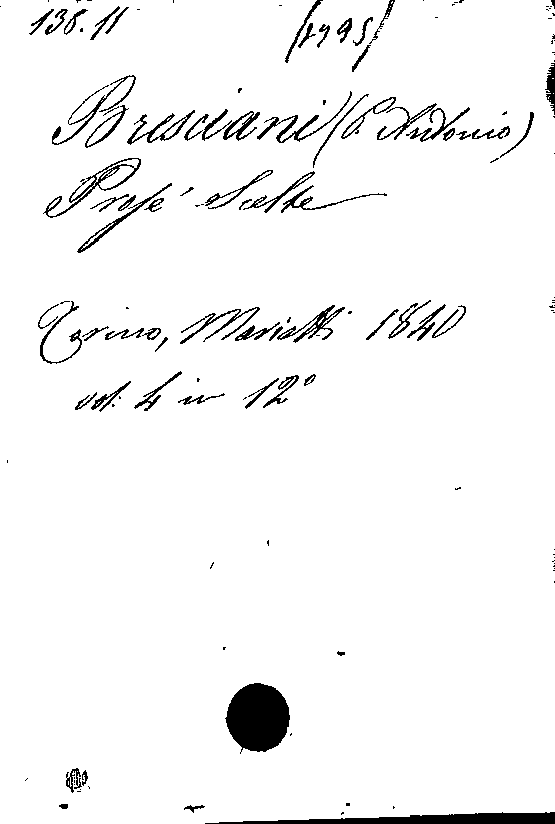 136.11 (1995)
Bresciani (P. Antonio)
Prose Scelte
Torino, Marietti 1840
vol. 4 in 12°